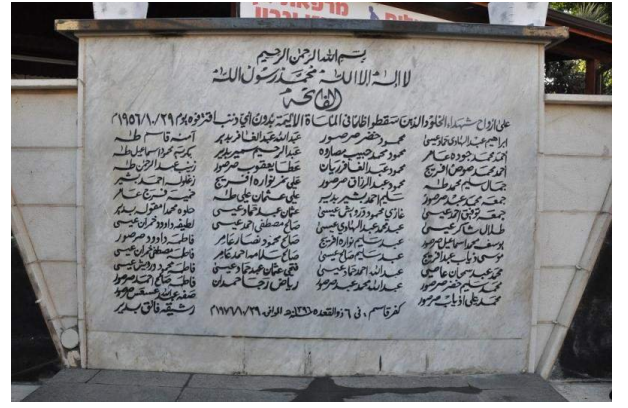 بسم الله الرحمن الرحيم
لا اله الا الله محمد رسول الله
الفاتحه
على ارواح شهداء الخلود الذين سقطوا ظلما في المأساة الاليمة بدون اي ذنب اقترفوه يوم ١٩٥٦/١٠/٢٩م
ابراهيم عبد الهادي حماد عيسى
احمد محمد جوده عامر
احمد محمد افريج
جمال سليم محمد طه
جمعه محمد عبد صرصور
جمعه توفيق احمد عيسى
طلال شاكر عيسى
يوسف محمد اسماعيل صرصور
موسى ذياب عبد افريج
محمد عبد سمحان عاصي
محمد سليم خضر صرصور
محمد علي اذياب صرصور
محمود خضر صرصور
محمود محمد حبيب مصاروه
محمود عبد الغافر ريان
محمود عبد الرزاق صرصور
سليم احمد بشير بدير
غازي محمود درويش عيسى
عبد محمد عبد الهادي عيسى
عبد سليم نواره افريج
عبد سليم صالح عيسى
عبد الله احمد حماد عيسى
عبد الله محمد عبد صرصور
عبد الله عبد الغافر بدير
عبد الرحيم سمير بدير
عطا يعقوب صرصور
علي نمر نواره افريج
علي عثمان علي طه
عثمان عبد حماد عيسى
صالح مصطفى احمد عيسى
صالح محمود نصار عامر
صالح سلامه احمد عامر
فتحي عثمان عبد حماد عيسى
رياض رجا حمدان
آمنه قاسم طه
بكريه محمود اسماعيل طه
زينب عبد الرحمن طه
زغلوله احمد بشير
خميسه فرج عامر
حلوه محمد بدير
لطيفه داوود عيسى
فاطمه داوود صرصور
فاطمه مصطفى عيسى
فاطمه محمود درويش عيسى
فاطمه صالح احمد صرصور
صفه عبد الله صرصور
رشيقه فائق بدير
كفر قاسم ، في ٦ ذو القعده ١٣٩٦ه الموافق ١٩٧٦/١٠/٢٩م